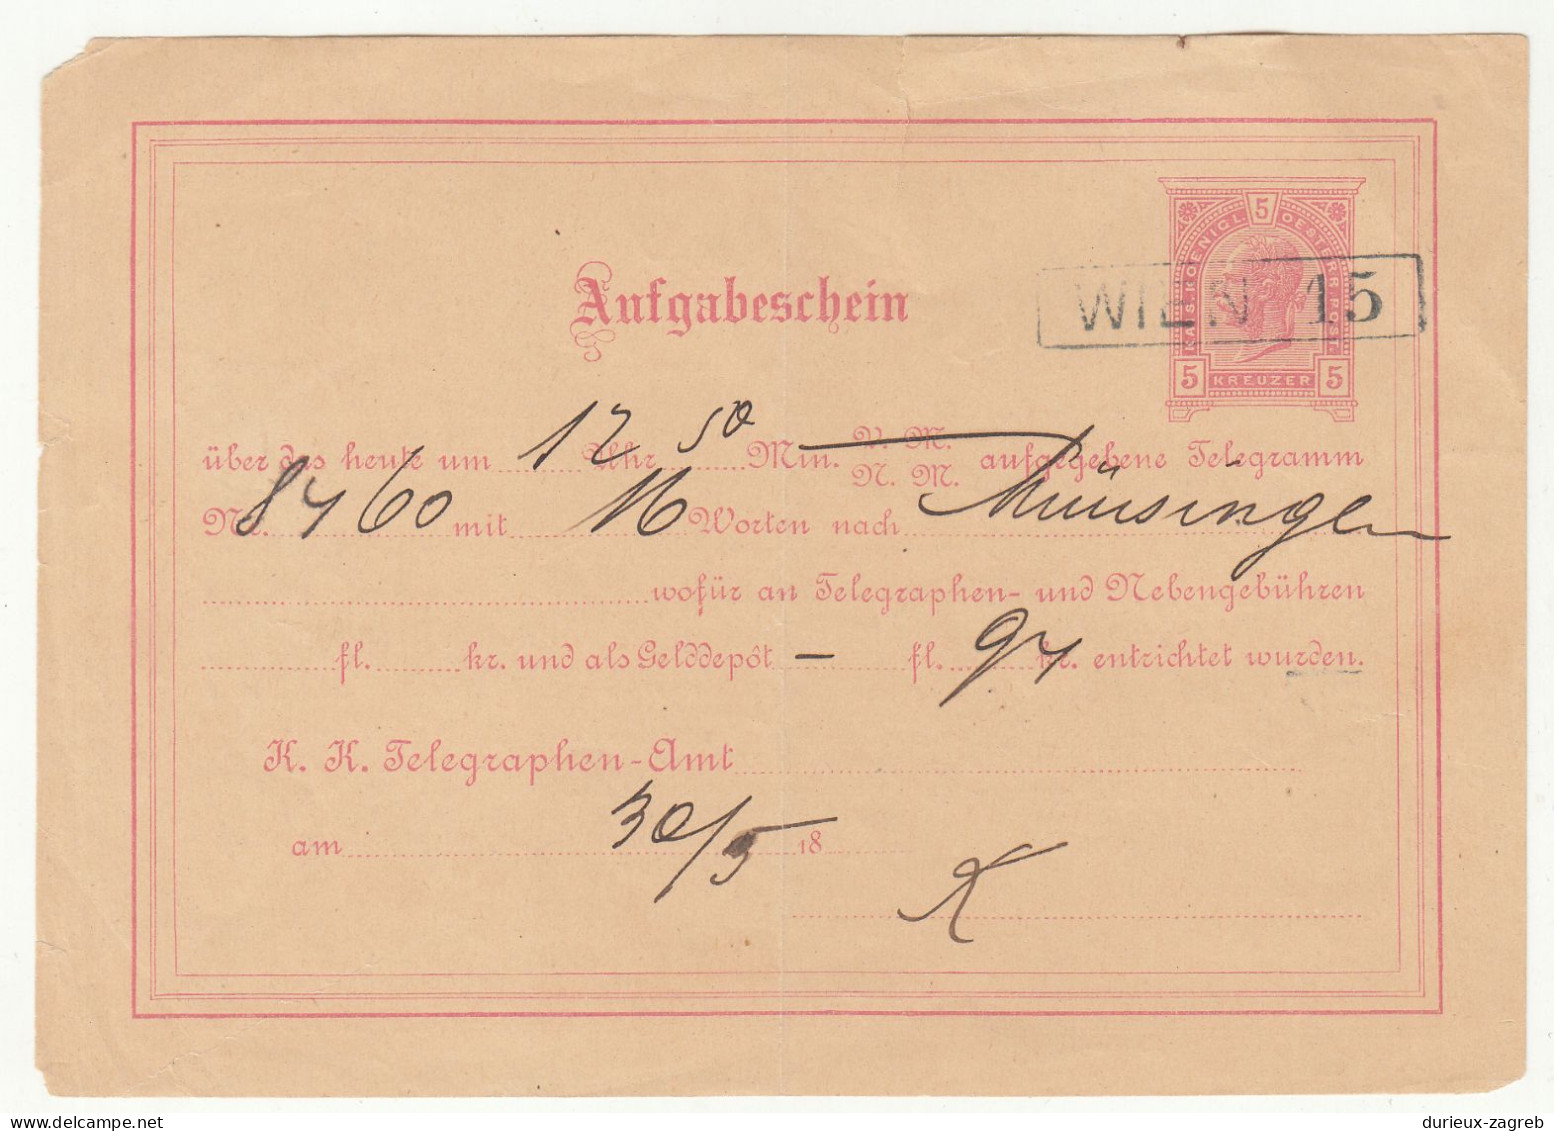 5
KAIS. KOENIGL. OESTERR. POST.
5 KREUZER 5
WIEN 15
Aufgabeschein
über das heute um 12 Uhr 50 Min. V. M. N. M. aufgegebene Telegramm
Nr. 8460 mit 16 Worten nach Münsingen
wofür an Telegraphen- und Nebengebühren
fl. kr. und als Gelddepôt — fl. 94 kr. entrichtet wurden.
K. K. Telegraphen-Amt
am 30/5 18
K
durieux-zagreb